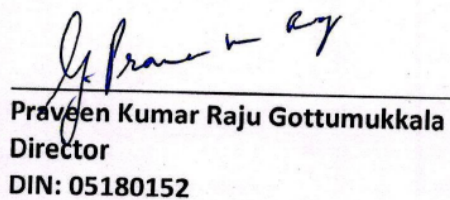 Praveen Kumar Raju Gottumukkala
Director
DIN: 05180152